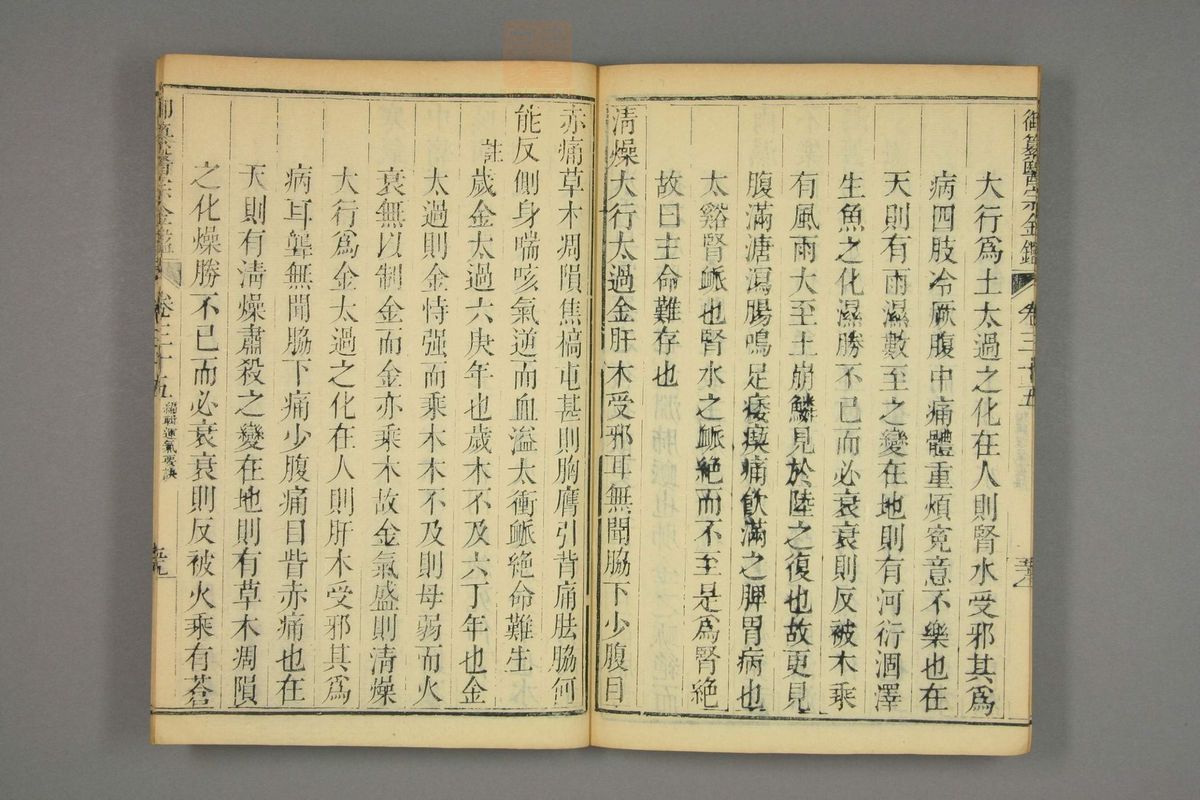 御纂醫宗金鑑 卷三十五
大行爲土太過之化在人則腎水受邪其爲
病四肢冷厥腹中痛體重煩寃意不樂也在
天則有雨濕數至之變在地則有河衍涸澤
生魚之化濕勝不已而必衰衰則反被木乘
有風雨大至土崩鱗見於陸之復也故更見
腹滿溏瀉腸鳴足痿瘈痛飲滿之脾胃病也
太谿腎䘑也腎水之䘑絶而不至是爲腎絶
故曰主命難存也
清燥大行太過金肝木受邪耳無聞脇下少腹目
赤痛草木凋隕焦槁屯甚則胸膺引背痛胠脇何
能反側身喘咳氣逆而血溢太衝䘑絶命難生
註 歲金太過六庚年也歲木不及六丁年也金
太過則金恃强而乘木木不及則母弱而火
衰無以制金而金亦乘木故金氣盛則清燥
大行爲金太過之化在人則肝木受邪其爲
病耳聾無聞脇下痛少腹痛目眥赤痛也在
天則有清燥肅殺之變在地則有草木凋隕
之化燥勝不已而必衰衰則反被火乘有蒼
御纂醫宗金鑑 卷三十五 編輯運氣要訣